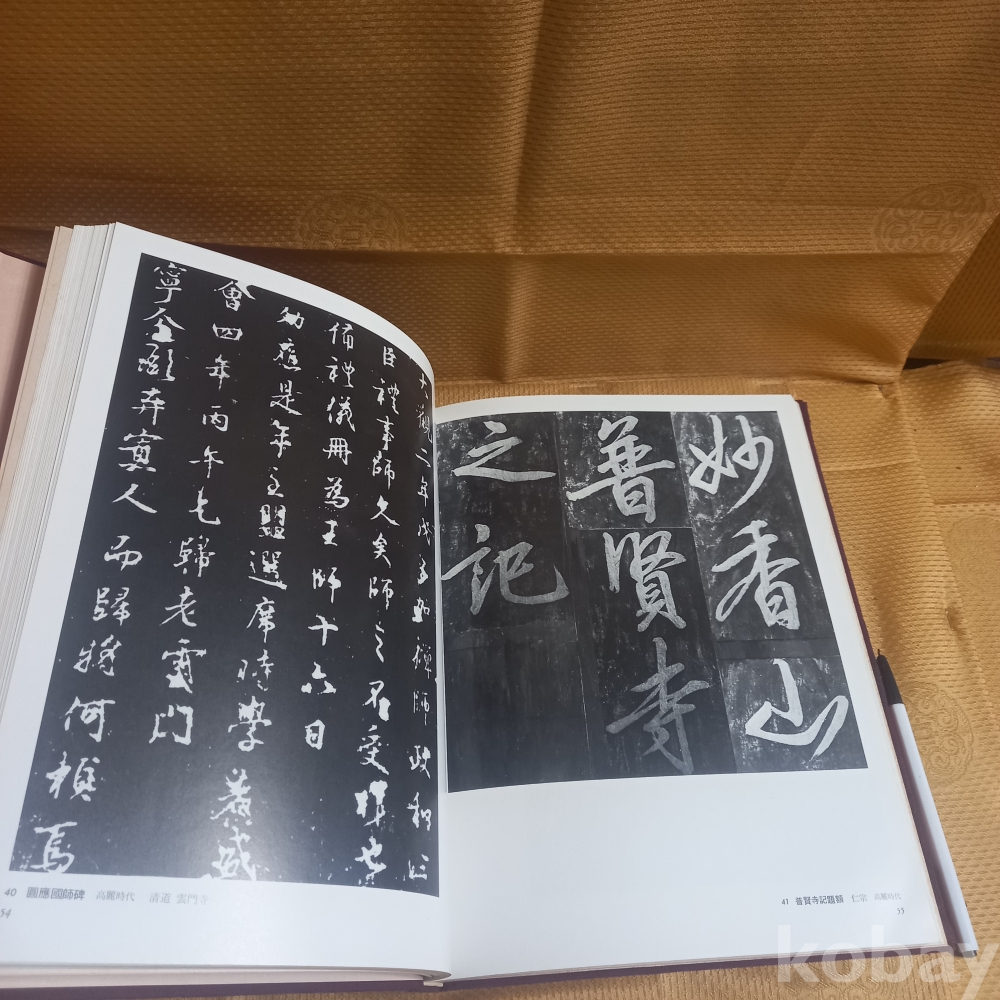 觀二年戊子加禪師政和
臣禮事師久矣師之不受拜也
備禮儀冊為王師十六日
勿應是年主盟選席時學者咸
會四年丙午乞歸老雲門
寧全弃寡人而歸將何禎焉
40 圓應國師碑 高麗時代 清道 雲門寺
54
妙香山
普賢寺
之記
41 普賢寺記題額 仁宗 高麗時代
55
kobay